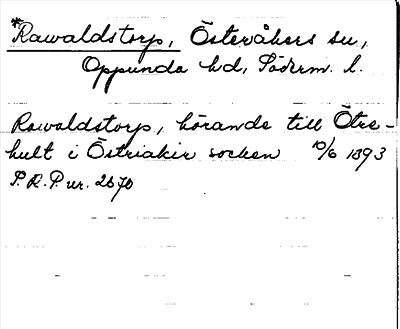 *Rawaldstorp, Österåkers sn,
Oppunda hd, Söderm. l.
Rawaldstorp, hörande till Ötre-
hult i Östriakir socken 10/6 1393
S.R.P. nr. 2670